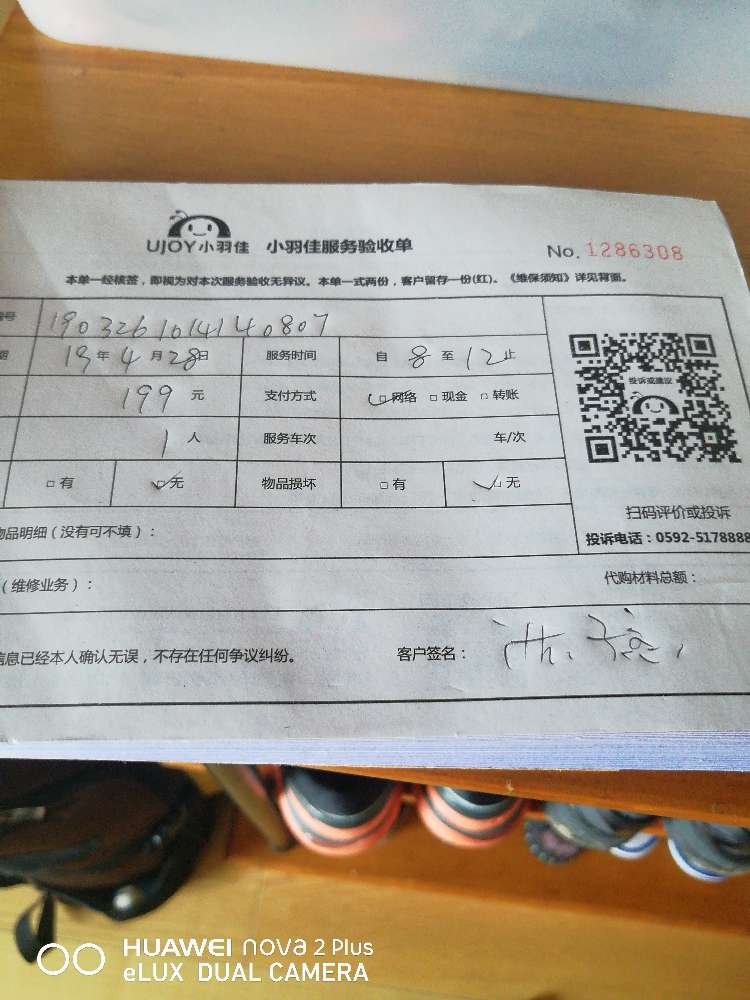 UJOY小羽佳 小羽佳服务验收单
No. 1286308
本单一经核签，即视为对本次服务验收无异议。本单一式两份，客户留存一份(红)。《维保须知》详见背面。
编号 1903261014140807
期 19年4月28日 服务时间 自 8 至 12 止
199 元 支付方式 □网络 □现金 □转账
1 人 服务车次 车/次
□有 □无 物品损坏 □有 □无
投诉或建议
扫码评价或投诉
投诉电话：0592-5178888
物品明细（没有可不填）：
（维修业务）： 代购材料总额：
信息已经本人确认无误，不存在任何争议纠纷。 客户签名：
HUAWEI nova 2 Plus
eLUX DUAL CAMERA